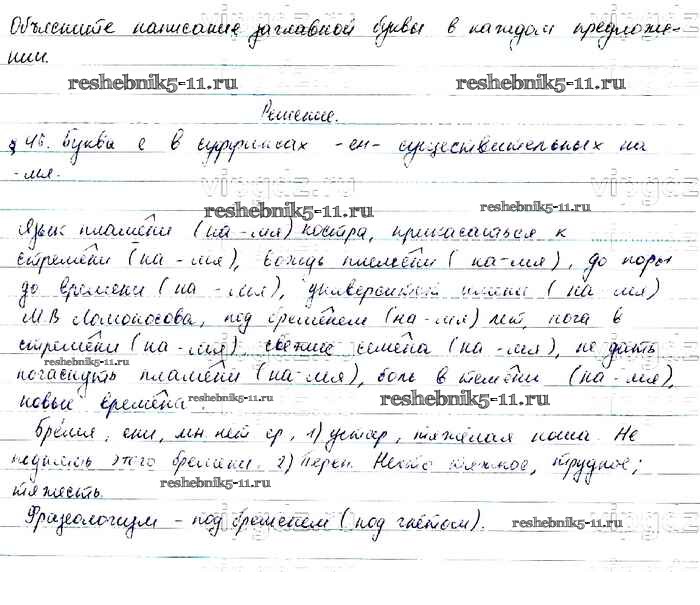 Объясните написание заглавной буквы в каждом предложе-
нии.
reshebnik5-11.ru reshebnik5-11.ru
Решение.
§ 46. Буква е в суффиксах -ен- существительных на
-мя.
reshebnik5-11.ru reshebnik5-11.ru
Язык пламени (на -мя) костра, прикасаться к
стремени (на -мя), вождь племени (на -мя), до поры
до времени (на -мя), университет имени (на мя)
МВ Ломоносова, под бременем (на -мя) лет, нога в
стремени (на -мя), свежие семена (на -мя), не дать
reshebnik5-11.ru
погаснуть пламени (на -мя), боль в темени (на -мя),
новые времена. reshebnik5-11.ru reshebnik5-11.ru
Бремя, ени, мн нет ср, 1) устар, тяжёлая ноша. Не
поднимть этого бремени. 2) Перен. Нечто тяжкое, трудное;
тяжесть. reshebnik5-11.ru
Фразеологизм - под бременем (под гнётом). reshebnik5-11.ru